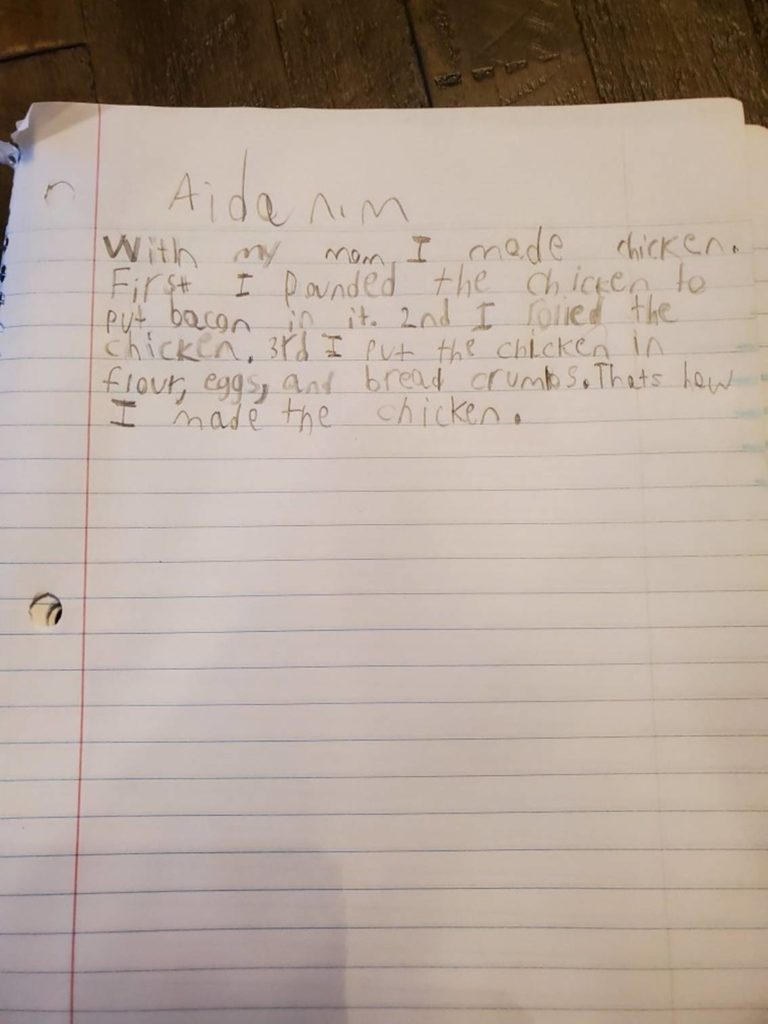 Aidan.m
With my mom, I made chicken.
First I pounded the chicken to
put bacon in it. 2nd I rolled the
chicken. 3rd I put the chicken in
flour, eggs, and bread crumbs. Thats how
I made the chicken.